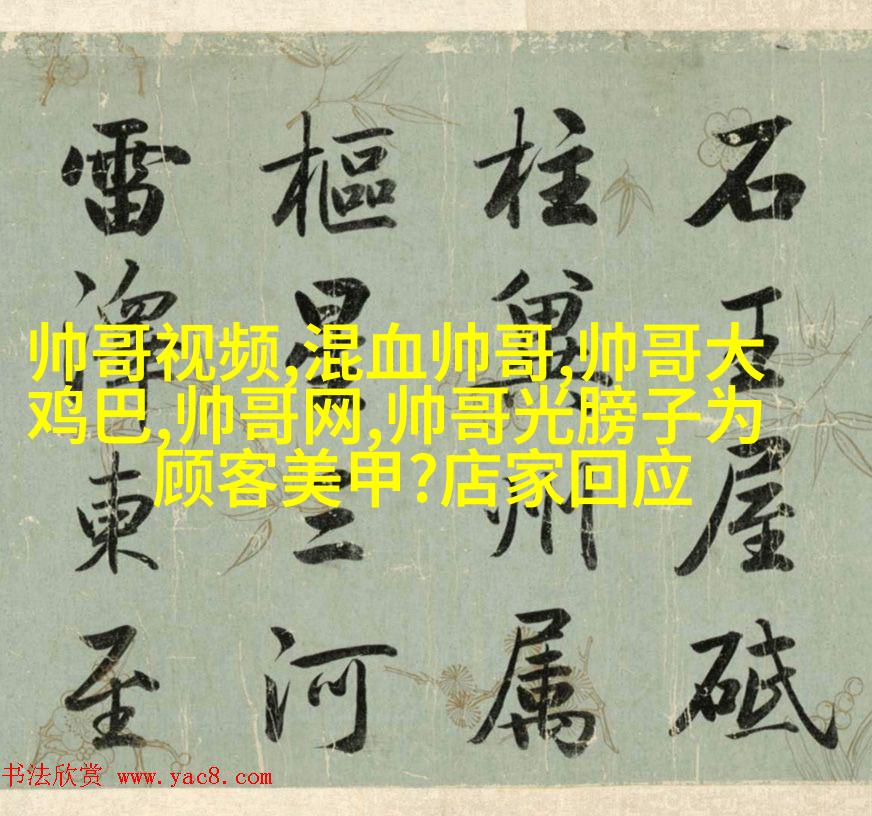 石王屋砥
柱冀州属
樞星三河
雷澤東至
帅哥视频,混血帅哥,帅哥大
鸡巴,帅哥网,帅哥光膀子为
顾客美甲?店家回应
书法欣赏 www.yac8.com